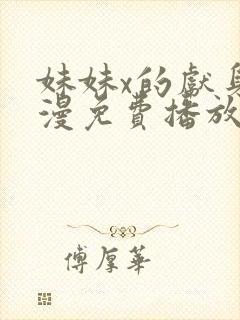 妹妹x的獻身
漫免費播放
傅厚華